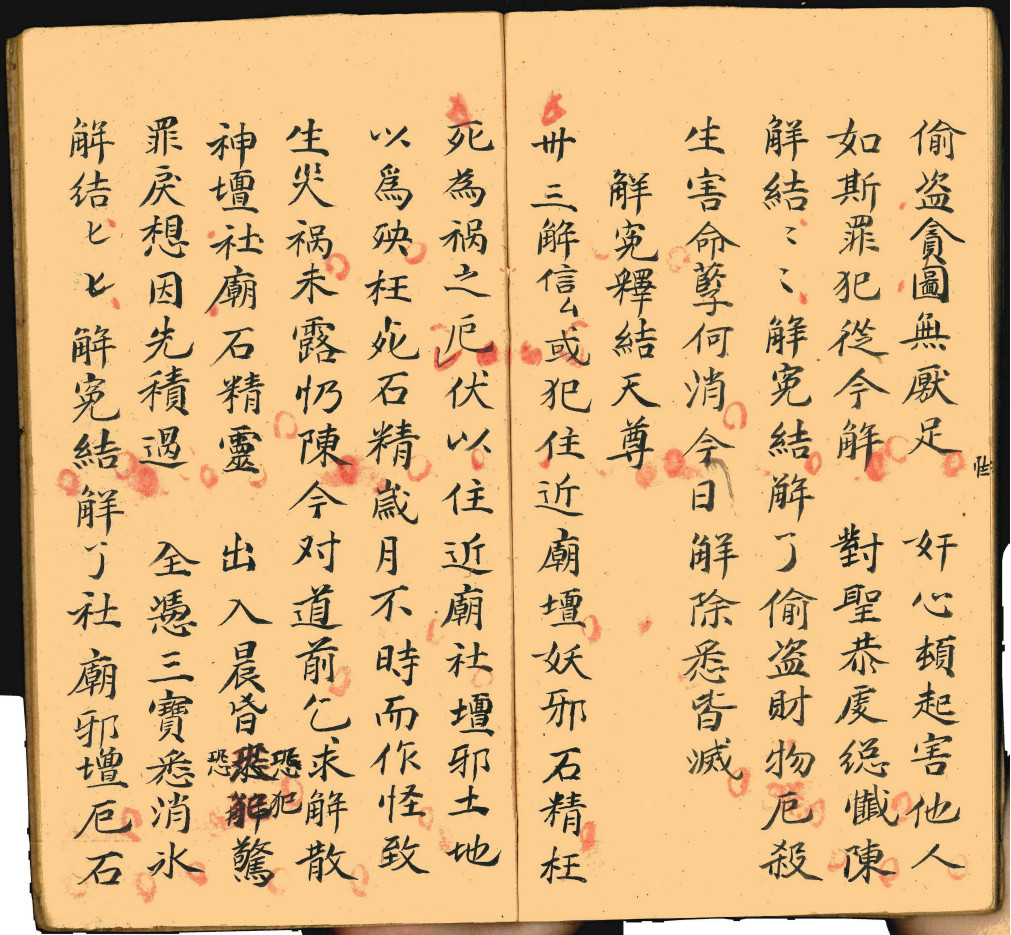 偷盗貪圖無厭足　奸心頓起害他人
如斯罪犯從今解　對聖恭虔総懺陳
解結〻〻解寃結解了偷盗財物厄殺
生害命孽何消今日解除悉皆滅
解寃釋結天尊
卅三解信厶或犯住近廟壇妖邪石精枉
死為祸之厄伏以住近廟社壇邪土地
以爲殃枉死石精歲月不時而作怪致
生災祸未露忉陳今对道前乞求解散
神壇社廟石精靈　出入晨昏恐犯驚
恐
罪戾想因先積過　全憑三寶悉消氷
解结匕匕解寃結解了社廟邪壇厄石